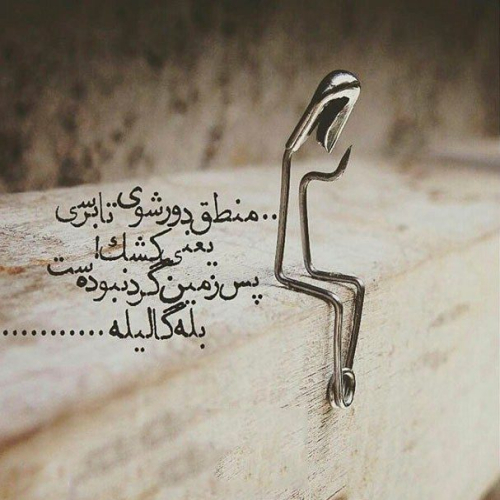 ..منطق دور شوی تا برسی
یعنی کشک!
پس زمین گرد نبوده ست
بله گالیله ...........